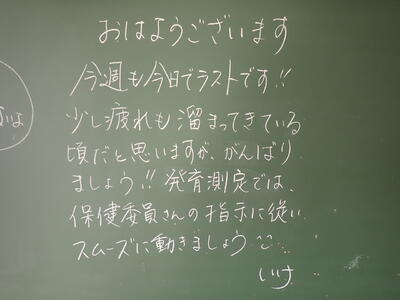 おはようございます
今週も今日でラストです!!
少し疲れも溜まってきている
頃だと思いますが、がんばり
ましょう!! 発育測定では、
保健委員さんの指示に従い
スムーズに動きましょう
いけ